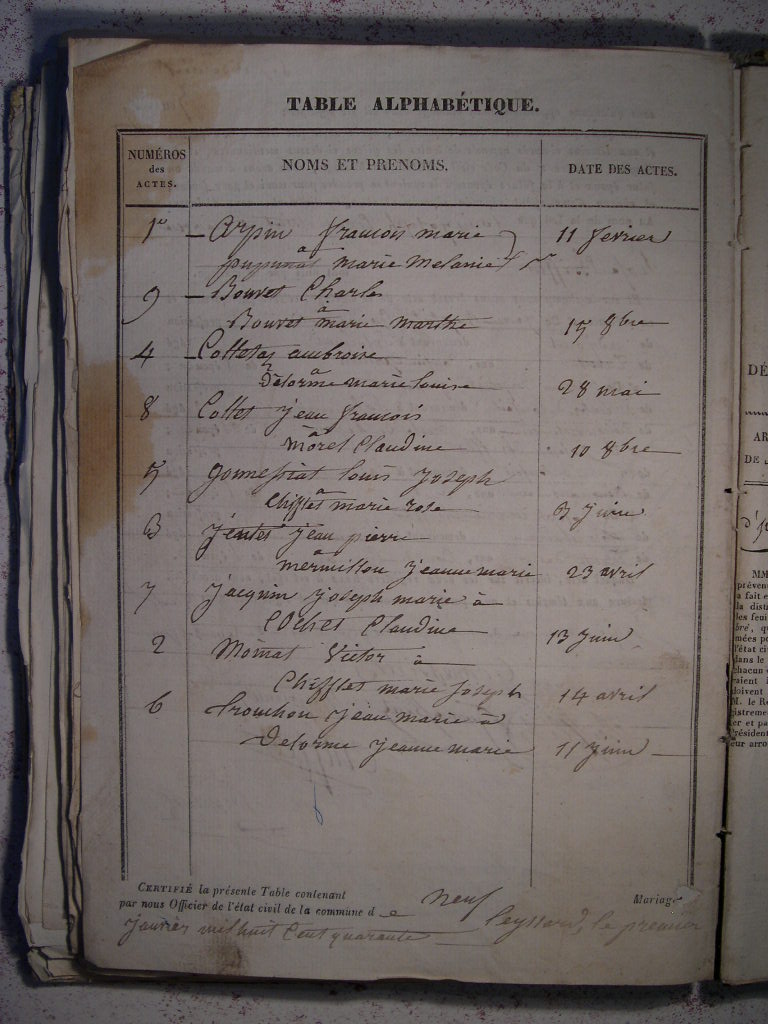 TABLE ALPHABÉTIQUE.
NUMÉROS des ACTES.
NOMS ET PRENOMS.
DATE DES ACTES.
1er — Arpin françois marie 11 fevrier
à
marie Melanie
9 — Bouvet Charles
à
Bouvet marie marthe 15 8bre
4 — Colletaz ambroise
à
Delorme marie louise 28 mai
8 Collet jean françois
à
morel Claudine 10 8bre
5 gonnessiat louis joseph
à
Chifflet marie rose 3 juin
3 jean pierre
à
mermillon jeanne marie 23 avril
7 jacquin joseph marie à
Cochet Claudine 13 juin
2 Moinat Victor à
Chifflet marie joseph 14 avril
6 trouchou jean marie à
Delorme jeanne marie 11 juin
CERTIFIÉ la présente Table contenant neuf Mariages
par nous Officier de l'état civil de la commune de Leyssard, le premier
janvier mil huit Cent quarante
DÉ
AR
DE
MM
préven
a fait e
la distr
les feui
bré, qu
mées po
l'état civ
dans le
chacun
raient
doivent
M. le Re
gistreme
er et pa
Président
eur arro